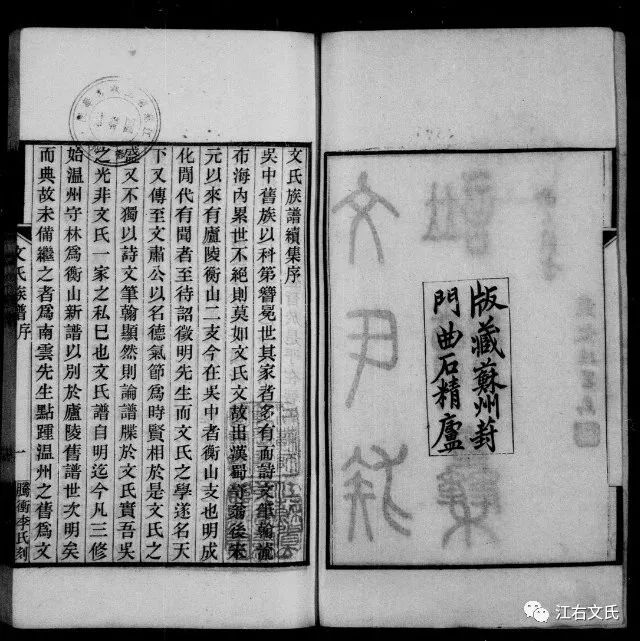 版藏蘇州葑
門曲石精廬
文氏族譜續集序
吳中舊族以科第簪冕世其家者多有而詩文筆翰流
布海內累世不絕則莫如文氏文故出漢蜀守翁後宋
元以來有廬陵衡山二支今在吳中者衡山支也明成
化間代有聞者至待詔徵明先生而文氏之學遂名天
下又傳至文肅公以名德氣節爲時賢相於是文氏之
盛又不獨以詩文筆翰顯然則論譜牒於文氏實吾吳
之光非文氏一家之私已也文氏譜自明迄今凡三修
始溫州守林爲衡山新譜以別於廬陵舊譜世次明矣
而典故未備繼之者爲南雲先生點踵溫州之舊爲文
文氏族譜序
一
騰衝李氏刻
江右文氏